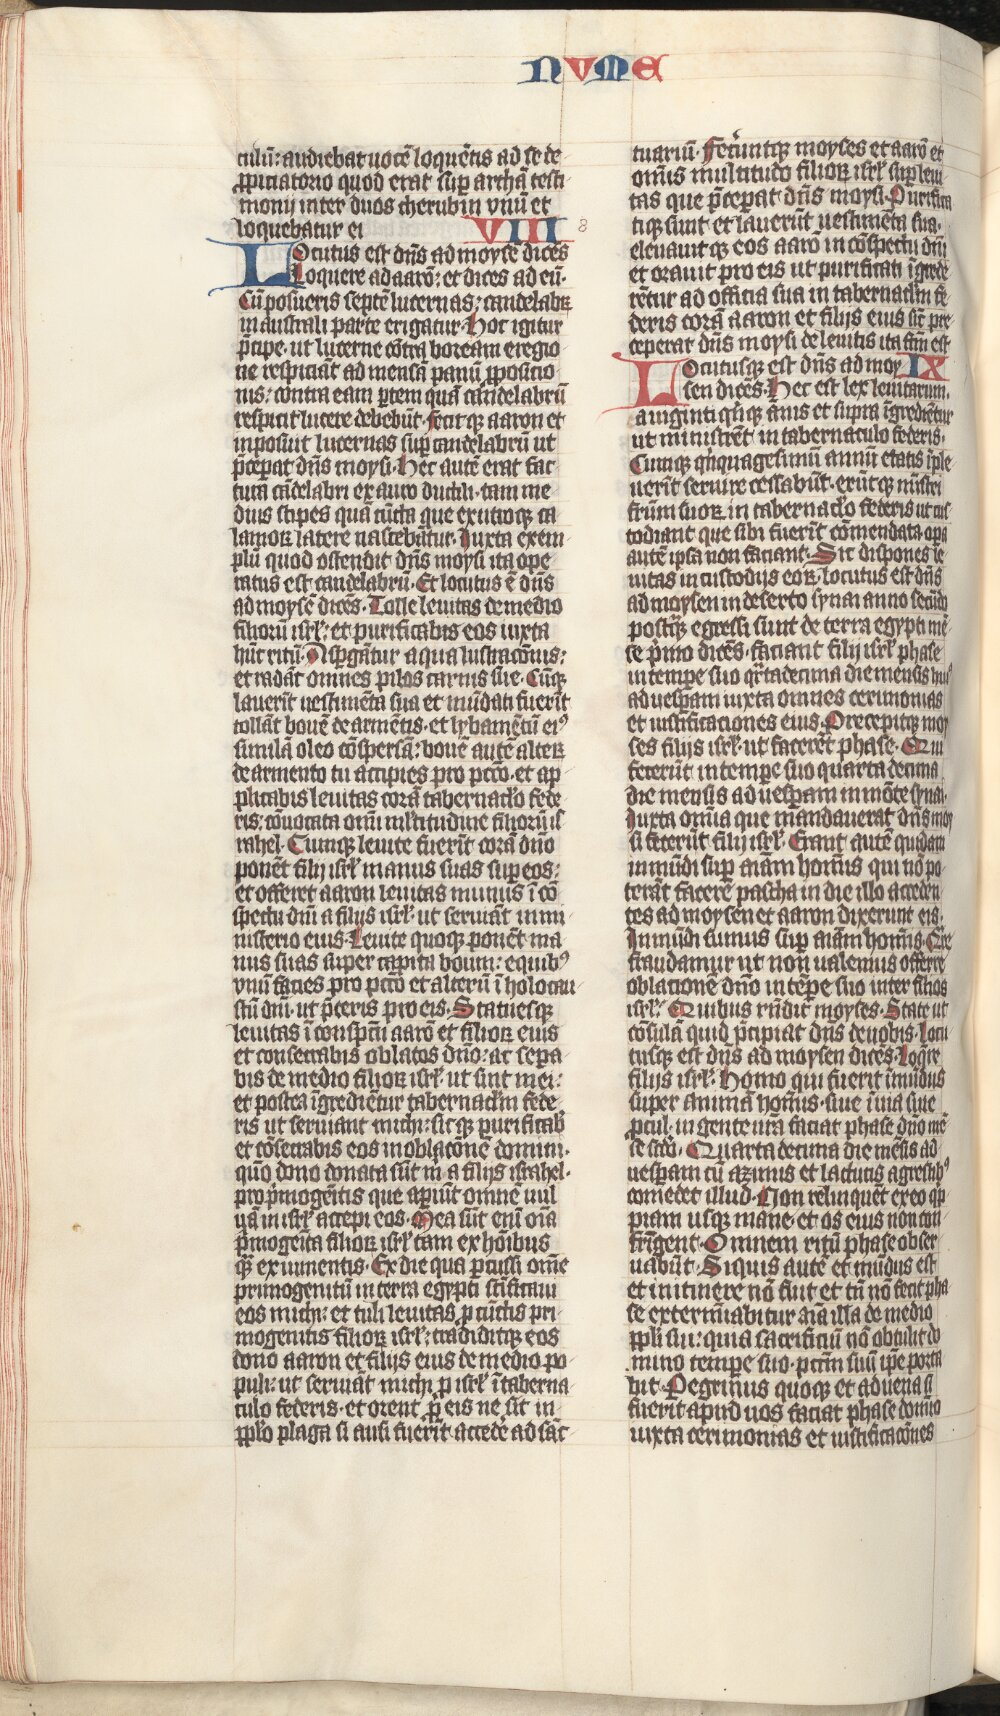 NUME
culū: audiebat uocē loquētis ad se de
ꝓpiciatorio quod erat sup̄ archā testi
monij inter duos cherubin vnū et
loquebatur ei VIII 8
Locutus est dn̄s ad moysē dicēs
Loquere ad aarō: et dices ad eū.
Cū posueris septē lucernas: candelabꝝ
in australi parte erigatur. Hoc igitur
p̄cipe. ut lucerne cōtra boream eregio
ne respiciāt ad mensā panū ꝓposicio
nis: contra eam ꝑtem quā candelabrū
respicit lucere debebūt. fecitqꝫ aaron et
inposuit lucernas sup̄ candelabrū ut
p̄ceꝑat dn̄s moysi. Hec autē erat fac
tura cādelabri ex auro ductili. tam me
dius stipes quā cūcta que ex utroqꝫ ca
lamoꝝ latere nascebātur. Iuxta exem
plū quod ostendit dn̄s moysi ita ope
ratus est candelabrū. Et locutus ē dn̄s
ad moysē dicēs. Tolle leuitas de medio
filiorū isrl̄: et purificabis eos iuxta
hūc ritū. Asꝑgātur aqua lustracōnis:
et radāt omnes pilos carnis sue. Cūqꝫ
lauerīt uestimēta sua et mūdati fuerīt
tollāt bouē de armētis. et lybamētū eiꝰ
similā oleo cōspersā: bouē autē alteꝝ
de armento tu accipies pro pcc̄o. et ap
plicabis leuitas corā tabernacl̄o fede
ris: cōuocata omī ml̄titudine filiorū is
rahel. Cumqꝫ leuite fuerīt corā dn̄o
ponēt filij isrl̄ manus suas sup̄ eos:
et offeret aaron leuitas munus ī cō
spectu dn̄i a filijs isrl̄. ut seruiāt in mi
nisterio eius. Leuite quoqꝫ ponēt ma
nus suas super capita boum: e quibꝰ
vnū facies pro pcc̄o et alterū ī holocau
stū dn̄i. ut p̄ceris pro eis. Statuesqꝫ
leuitas ī conspc̄tu aarō et filioꝝ eius
et consecrabis oblatos dn̄o: ac sepa
bis de medio filioꝝ isrl̄. ut sint mei:
et postea īgrediētur tabernacl̄m fede
ris ut seruiant michi: sicqꝫ purificab
et cōsecrabis eos in oblacōnē domini.
qm̄ dono donata sūt m̄ a filijs israhel.
pro p̄mogēitis que aꝑiūt omnē uul
uā in isrl̄ accepi eos. Mea sūt enī om̄a
p̄mogeīta filioꝝ isrl̄ tam ex hoībus
qꝫ ex iumentis. Ex die qua ꝑcussi om̄e
primogenitū in terra egypti scīficaui
eos michi: et tuli leuitas ꝓ cūctis pri
mogenitis filioꝝ isrl̄: tradidiqꝫ eos
dono aaron et filijs eius de medio po
puli: ut seruiāt michi ꝓ isrl̄ ī taberna
culo federis. et orent ꝓ eis ne sit in
ppl̄o plaga si ausi fuerīt accedē ad sāc
tuariū. Feceruntqꝫ moyses et aarō et
omīs multitudo filioꝝ isrl̄ suꝑ leui
tas que p̄ceꝑat dn̄s moysi. Purifica
tiqꝫ sunt et lauerūt uestimēta sua.
eleuauitqꝫ eos aarō in cōspectu dn̄i
et orauit pro eis ut purificati īgrede
rētur ad officia sua in tabernacl̄m fe
deris corā aaron et filijs eius sic̄ pre
ceperat dn̄s moysi de leuitis ita fc̄m est
Locutusqꝫ est dn̄s ad moy IX
sen dicēs. Hec est lex leuitarum.
a uiginti qn̄qꝫ ānis et supra īgrediētur
ut ministrēt in tabernaculo federis.
Cumqꝫ qn̄quagesimū annū etatis īple
uerīt seruire cessabūt. erūtqꝫ mīstri
frūm suoꝝ in tabernacl̄o federis ut cus
todiant que sibi fuerīt cōmendata. oꝑa
autē ipsa non faciant. Sic dispones le
uitas in custodijs eoꝝ. locutus est dn̄s
ad moysen in deserto synai anno secūdo
postqꝫ egressi sunt de terra egypti mē
se p̄mo dicēs. faciant filij isrl̄ phase
in tempe suo qr̄tadecima die mensis huiꝰ
ad uesꝑam iuxta omnes cerimonias
et iustificaciones eius. Precepitqꝫ moy
ses filijs isrl̄. ut facerēt phase. Qui
fecerūt in tempe suo quarta decima
die mensis ad uesꝑam in mōte synai.
Iuxta omīa que mandauerat dn̄s moy
si fecerūt filij isrl̄. Erant autē quidam
inmūdi sup̄ aīam homīs qui nō po
terāt facere pascha in die illo acceden
tes ad moysen et aaron dixerunt eis.
Inmūdi sumus sup̄ aīam homīs. Qr̄e
fraudamur ut non ualemus offerre
oblacionē dn̄o in tēpe suo inter filios
isrl̄. Quibus rn̄dit moyses. State ut
cōsulā quid p̄cipiat dn̄s de uobis. Locu
tusqꝫ est dn̄s ad moysen dicēs. Loq̄re
filijs isrl̄. Homo qui fuerit īmūdus
super animā homīs. siue ī uia siue
ꝓcul. in gente ur̄a faciat phase dn̄o mē
se scd̄o. Quarta decima die mēsis ad
uesꝑam cū azimis et lactucis agrestibꝰ
comedet illud. Non relinquēt ex eo qp̄
piam usqꝫ mane. et os eius non con
frīgent. Omnem ritū phase obser
uabūt. Si quis autē et mūdus est
et in itinere nō fuit et tn̄ nō fecit pha
se extermīabitur aīa illa de medio
ppl̄i sui: quia sacrificiū nō obtulit do
mino tempe suo. pcc̄m suū ip̄e porta
bit. Peregrinus quoqꝫ et aduena si
fuerit apud uos faciat phase domīo
iuxta cerimonias et iustificacōnes